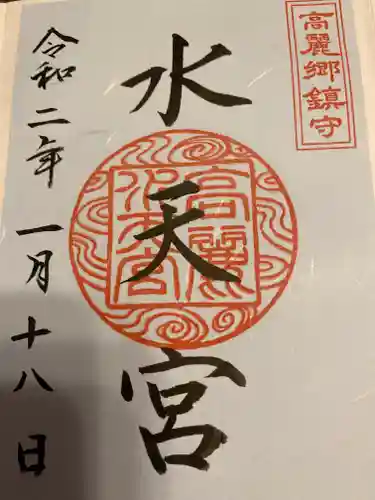 高麗郷鎮守
水天宮
高麗水天宮
令和二年一月十八日